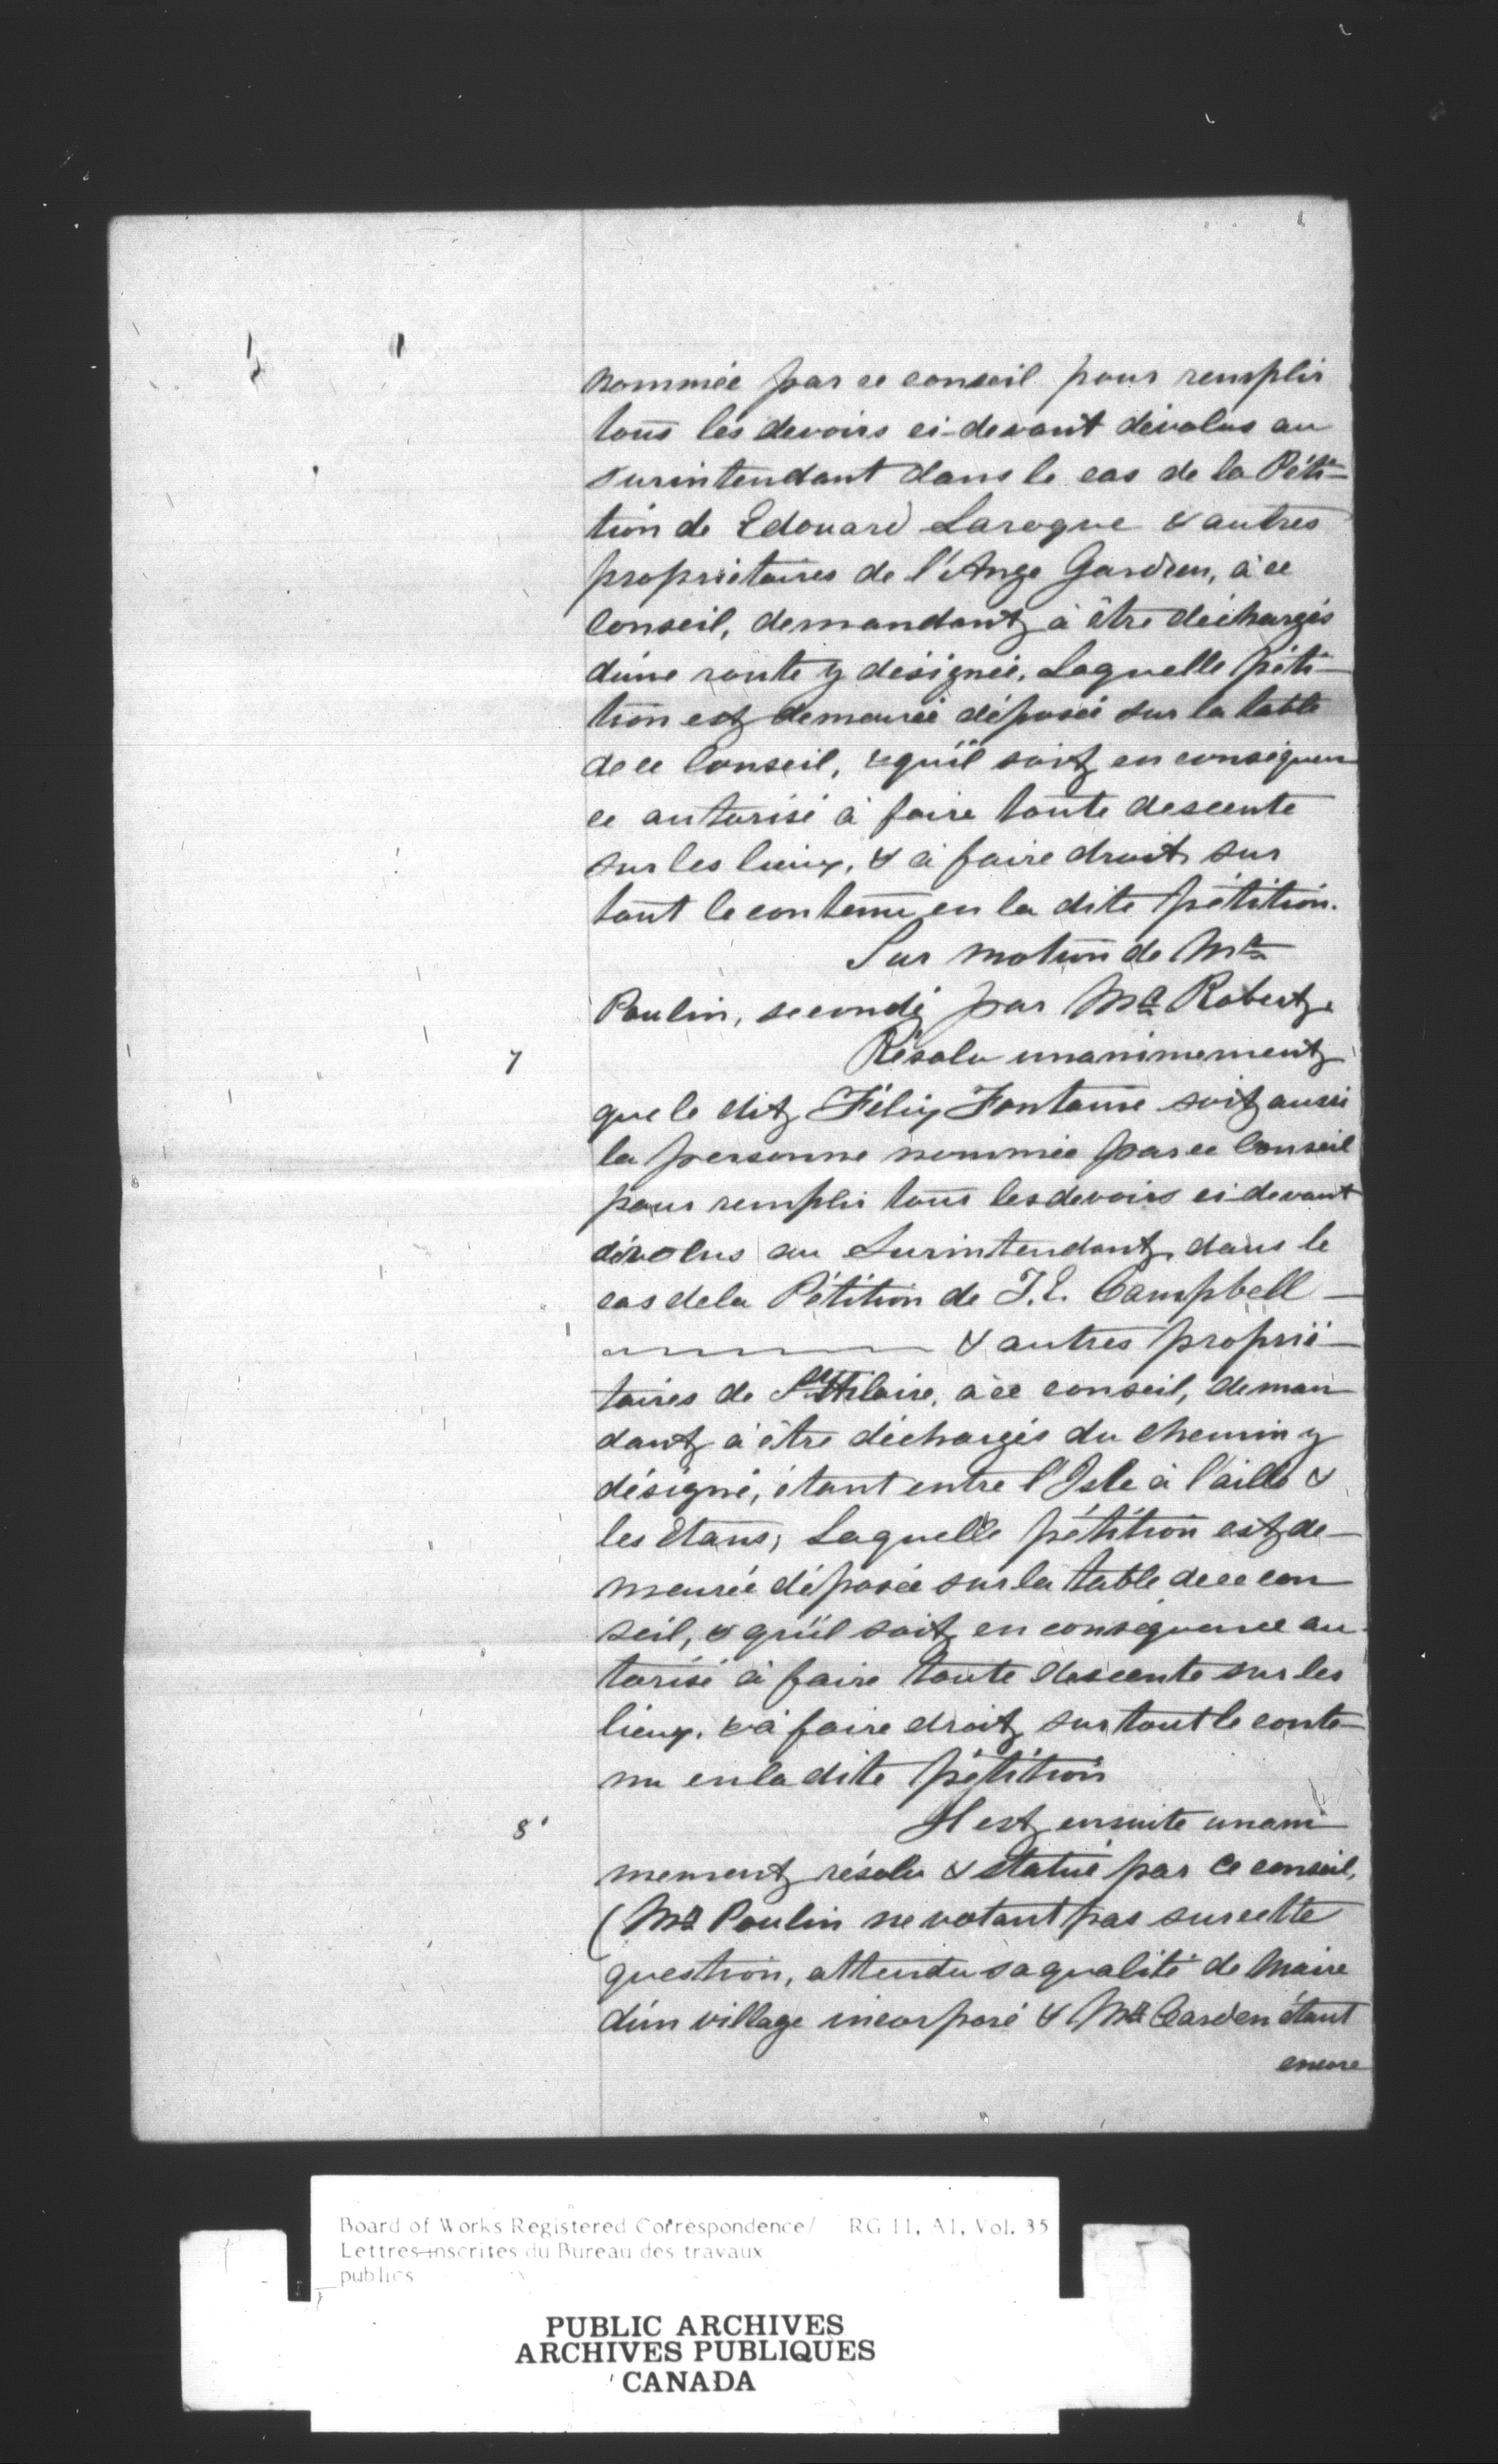 nommée par ce conseil pour remplir
tous les devoirs ci-devant dévolus au
surintendant dans le cas de la Péti-
tion de Edouard Laroque & autres
propriétaires de l'Ange Gardien, à ce
Conseil, demandant à être déchargés
d'une route y désignée, Laquelle péti-
tion est demeurée déposée sur la table
de ce Conseil, & qu'il soit en conséquen
ce autorisé à faire toute descente
sur les lieux, & à faire droit sur
tout le contenu en la dite pétition.
Sur motion de Mr
Poulin, secondé par Mr Robert,
7 Résolu unanimement
que le dit Félix Fontaine soit aussi
la personne nommée par ce Conseil
pour remplir tous les devoirs ci-devant
dévolus au Surintendant dans le
cas de la Pétition de T. E. Campbell —
& autres proprié-
taires de St Hilaire, à ce conseil, deman
dant à être déchargés du chemin y
désigné, étant entre l'Isle à l'aille &
les Etans; Laquelle pétition est de-
meurée déposée sur la table de ce con
seil, & qu'il soit en conséquence au-
torisé à faire toute descente sur les
lieux, & à faire droit sur tout le conte-
nu en la dite pétition
8' Il est ensuite unani
mement résolu & statué par ce conseil,
(Mr Poulin ne votant pas sur cette
question, attendu sa qualité de Maire
d'un village incorporé & Mr Carden étant
encore
Board of Works Registered Correspondence/ RG 11, A1, Vol. 35
Lettres inscrites du Bureau des travaux
publics
PUBLIC ARCHIVES
ARCHIVES PUBLIQUES
CANADA